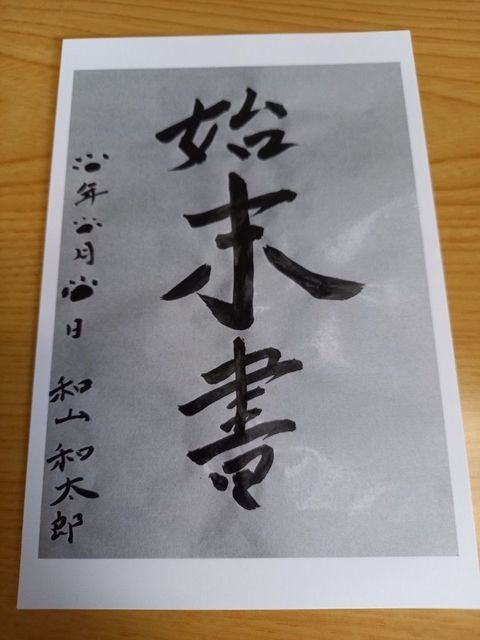 始末書
🐾年🐾月🐾日 和山和太郎